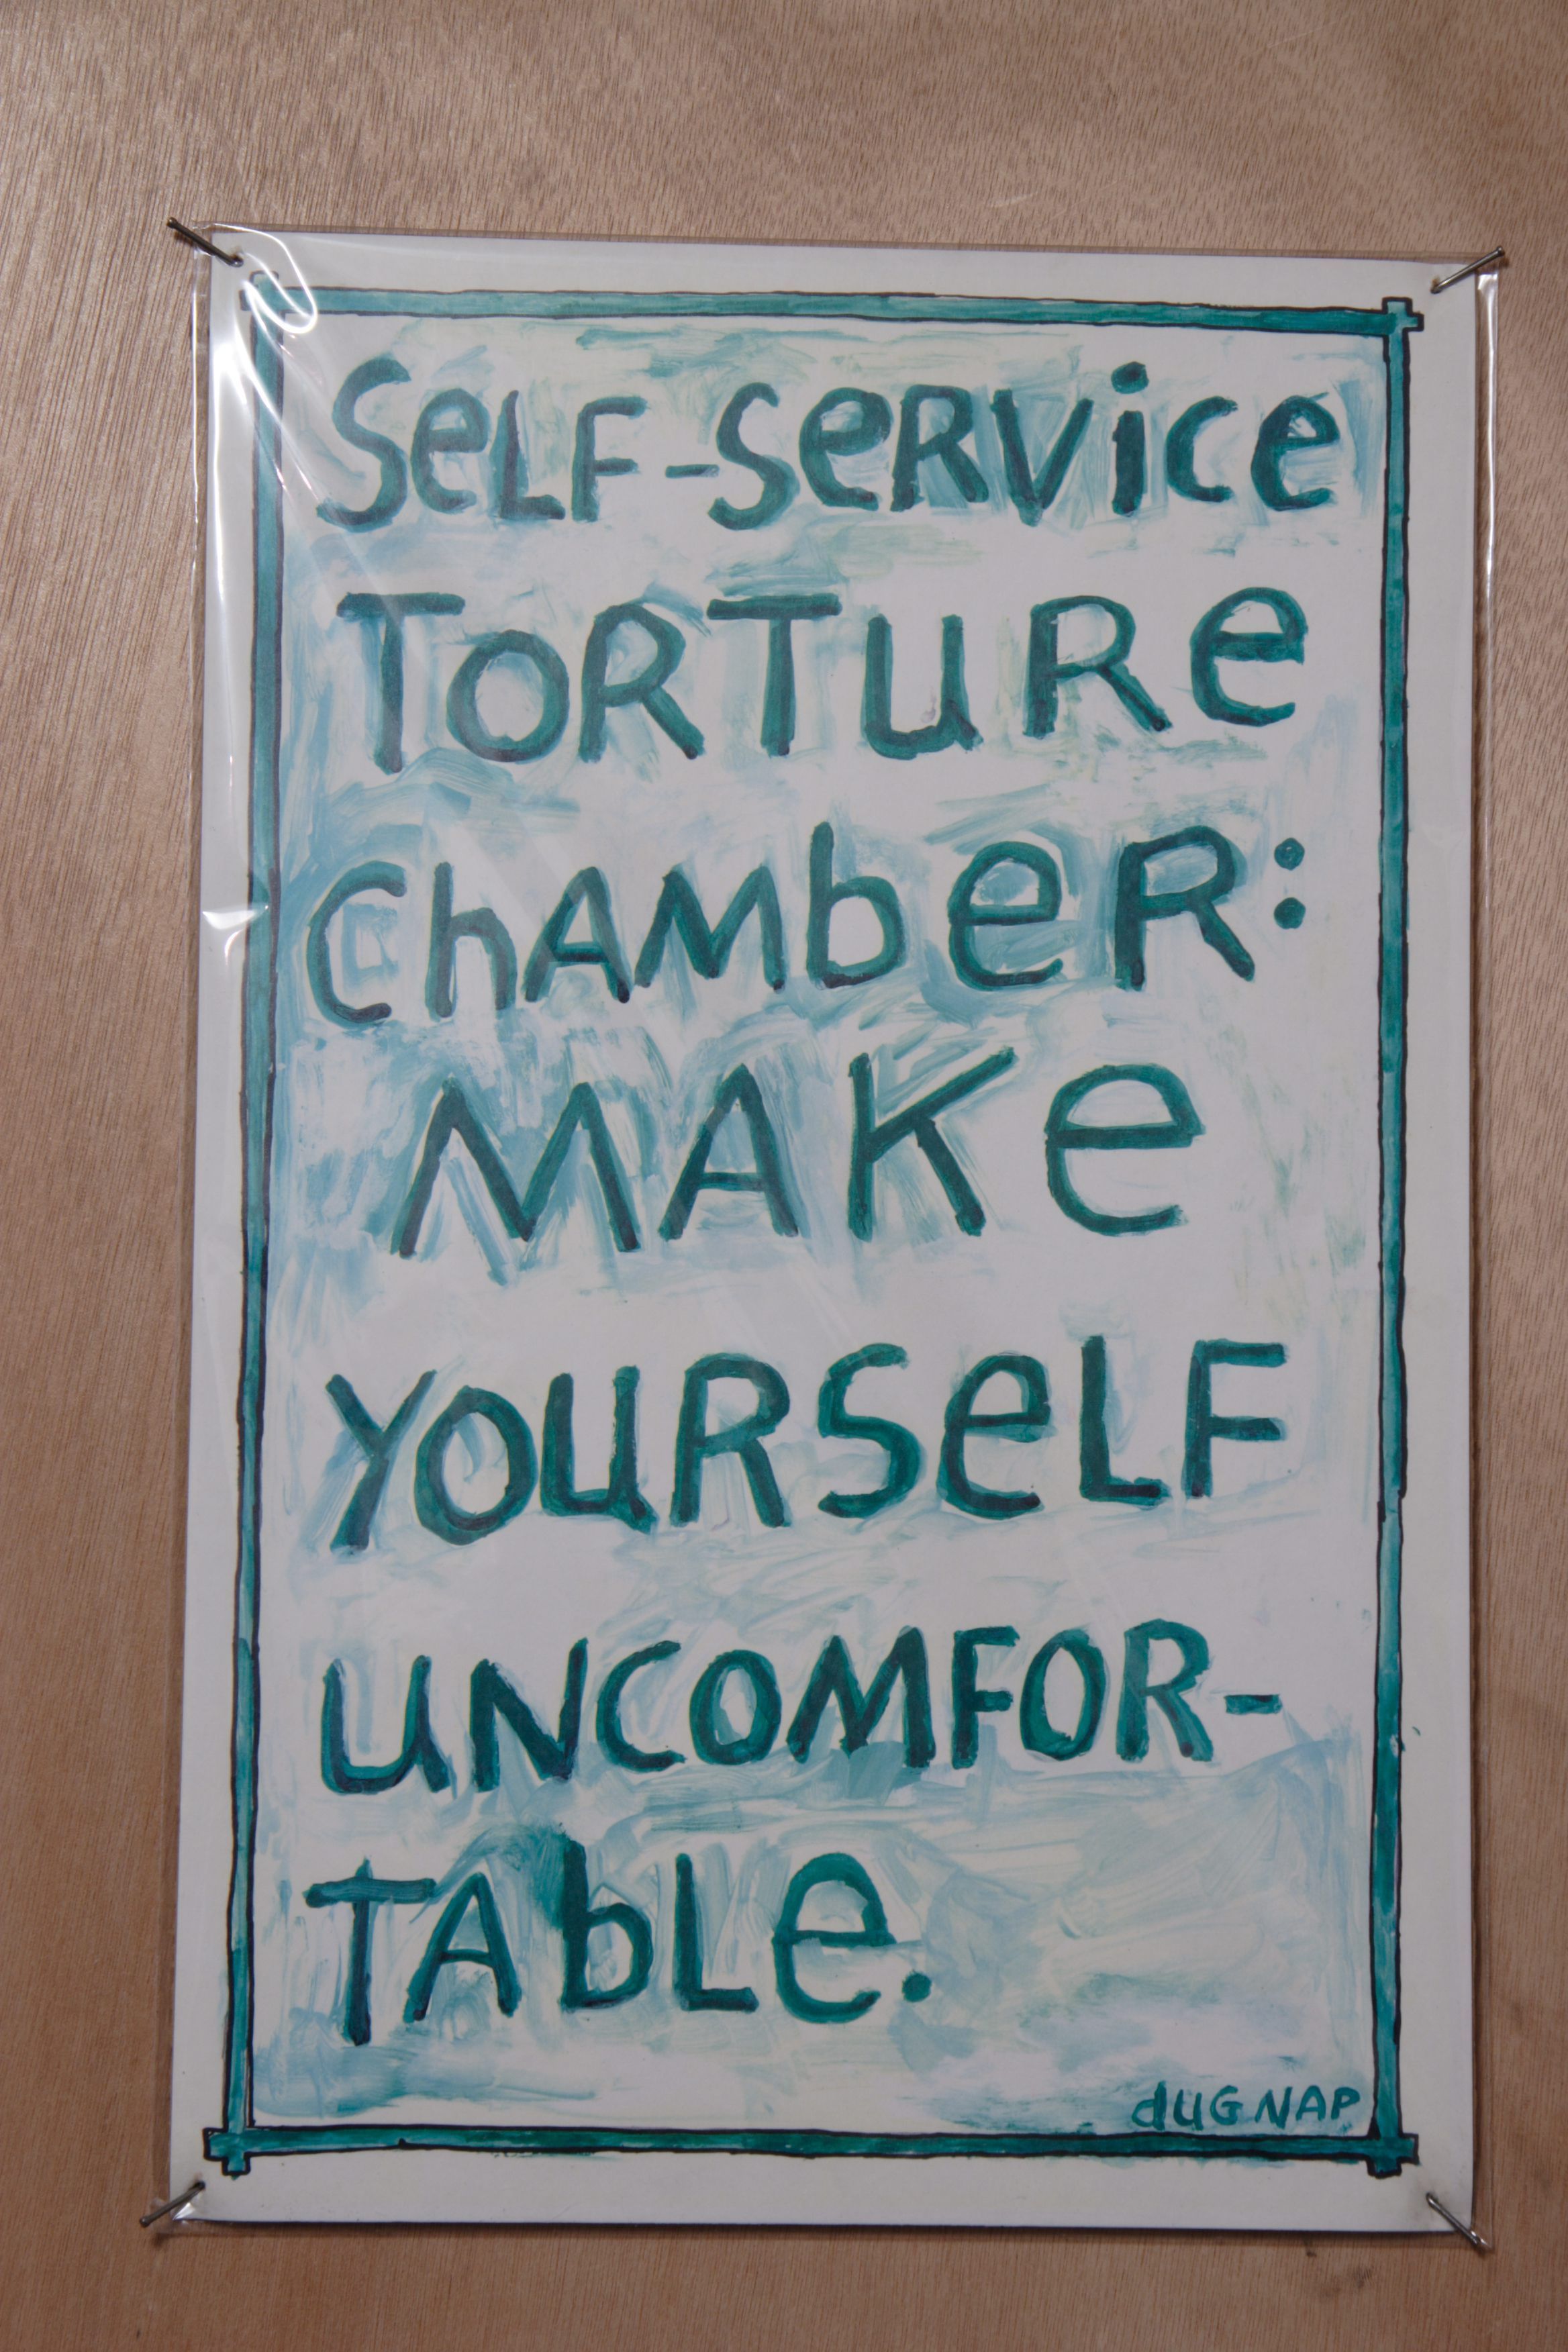 SeLF-SeRVice
TORTuRe
ChAMbeR:
MAKe
YOuRSeLF
uNCOMFOR-
TAbLe.
dUG NAP